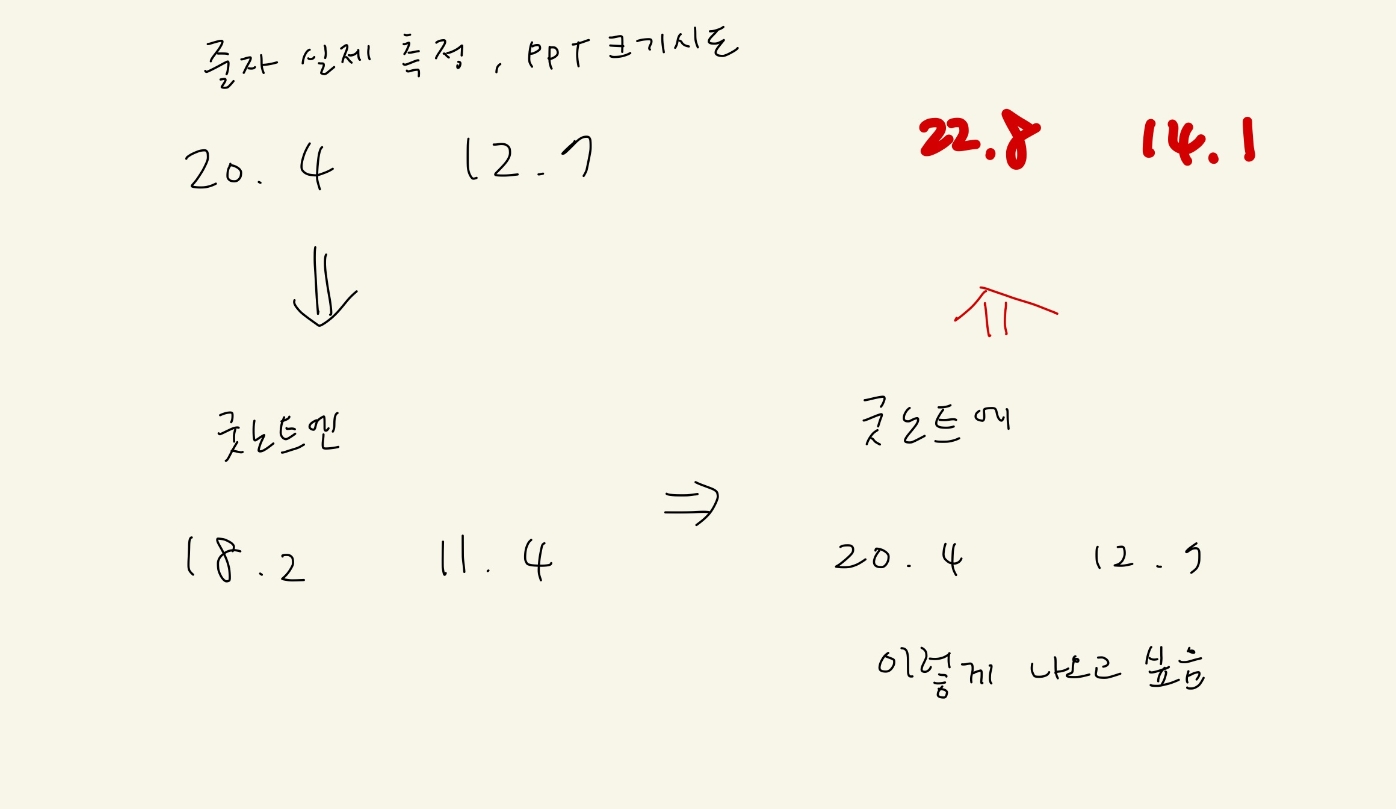 줄자 실제 측정, PPT 크기시도
20.4 12.7
22.8 14.1
굿노트엔
굿노트에
18.2 11.4
20.4 12.7
이렇게 나오고 싶음